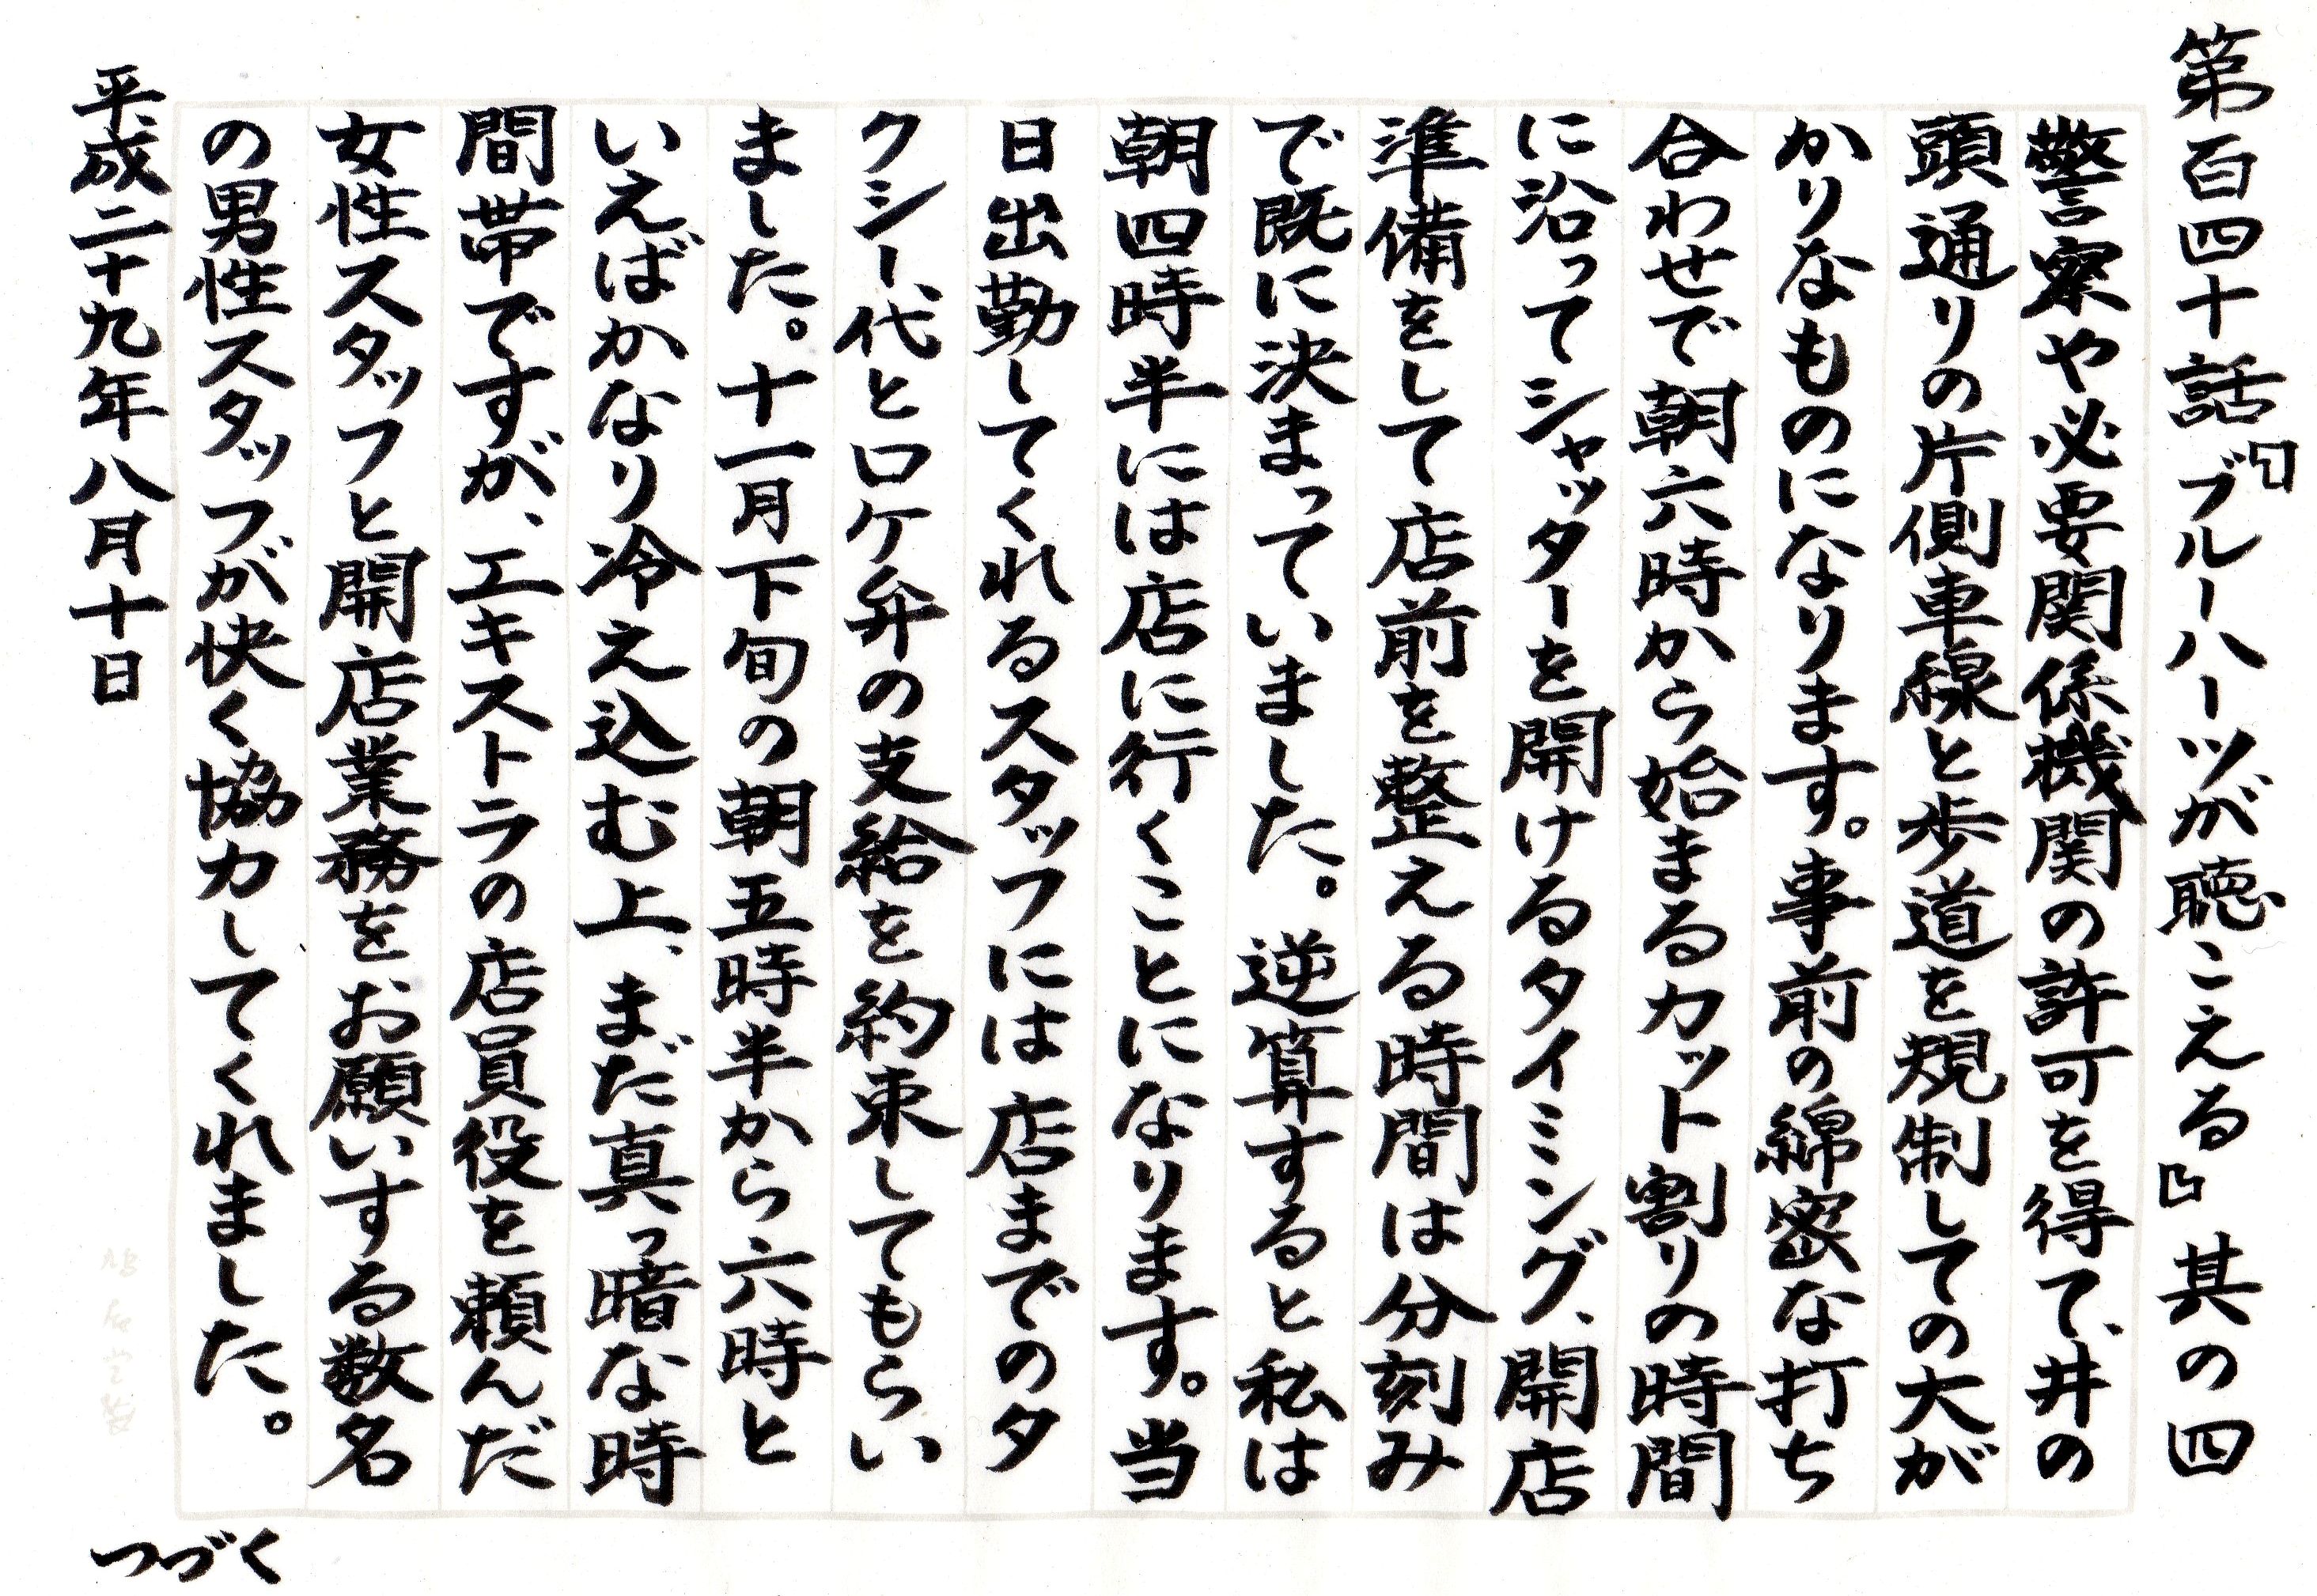 第百四十話『ブルーハーツが聴こえる』其の四
警察や必要関係機関の許可を得て、井の
頭通りの片側車線と歩道を規制しての大が
かりなものになります。事前の綿密な打ち
合わせで朝六時から始まるカット割りの時間
に沿ってシャッターを開けるタイミング、開店
準備をして店前を整える時間は分刻み
で既に決まっていました。逆算すると私は
朝四時半には店に行くことになります。当
日出勤してくれるスタッフには店までのタ
クシー代とロケ弁の支給を約束してもらい
ました。十一月下旬の朝五時半から六時と
いえばかなり冷え込む上、まだ真っ暗な時
間帯ですが、エキストラの店員役を頼んだ
女性スタッフと開店業務をお願いする数名
の男性スタッフが快く協力してくれました。
平成二十九年八月十日
つづく